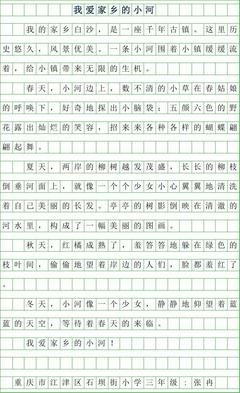 我爱家乡的小河
我的家乡白沙，是一座千年古镇。这里历
史悠久，风景优美。一条小河围着小镇缓缓流
着，给小镇带来无限的生机。
春天，小河边上，数不清的小草在春姑娘
的呼唤下，好奇地探出小脑袋；五颜六色的野
花露出灿烂的笑容，招来来各种各样的蝴蝶翩
翩起舞。
夏天，两岸的柳树越发茂盛，长长的柳枝
倒垂河面上，就像一个个少女小心翼翼地清洗
着自己美丽的长发。亭亭的树影倒映在清澈的
河水里，构成了一幅美丽的图画。
秋天，红橘成熟了，羞答答地躲在绿色的
枝叶间，偷偷地望着岸边的人们，脸都羞红了
。
冬天，小河像一个少女，静静地仰望着蓝
蓝的天空，等待着春天的来临。
我爱家乡的小河！
重庆市江津区石坝街小学三年级：张冉